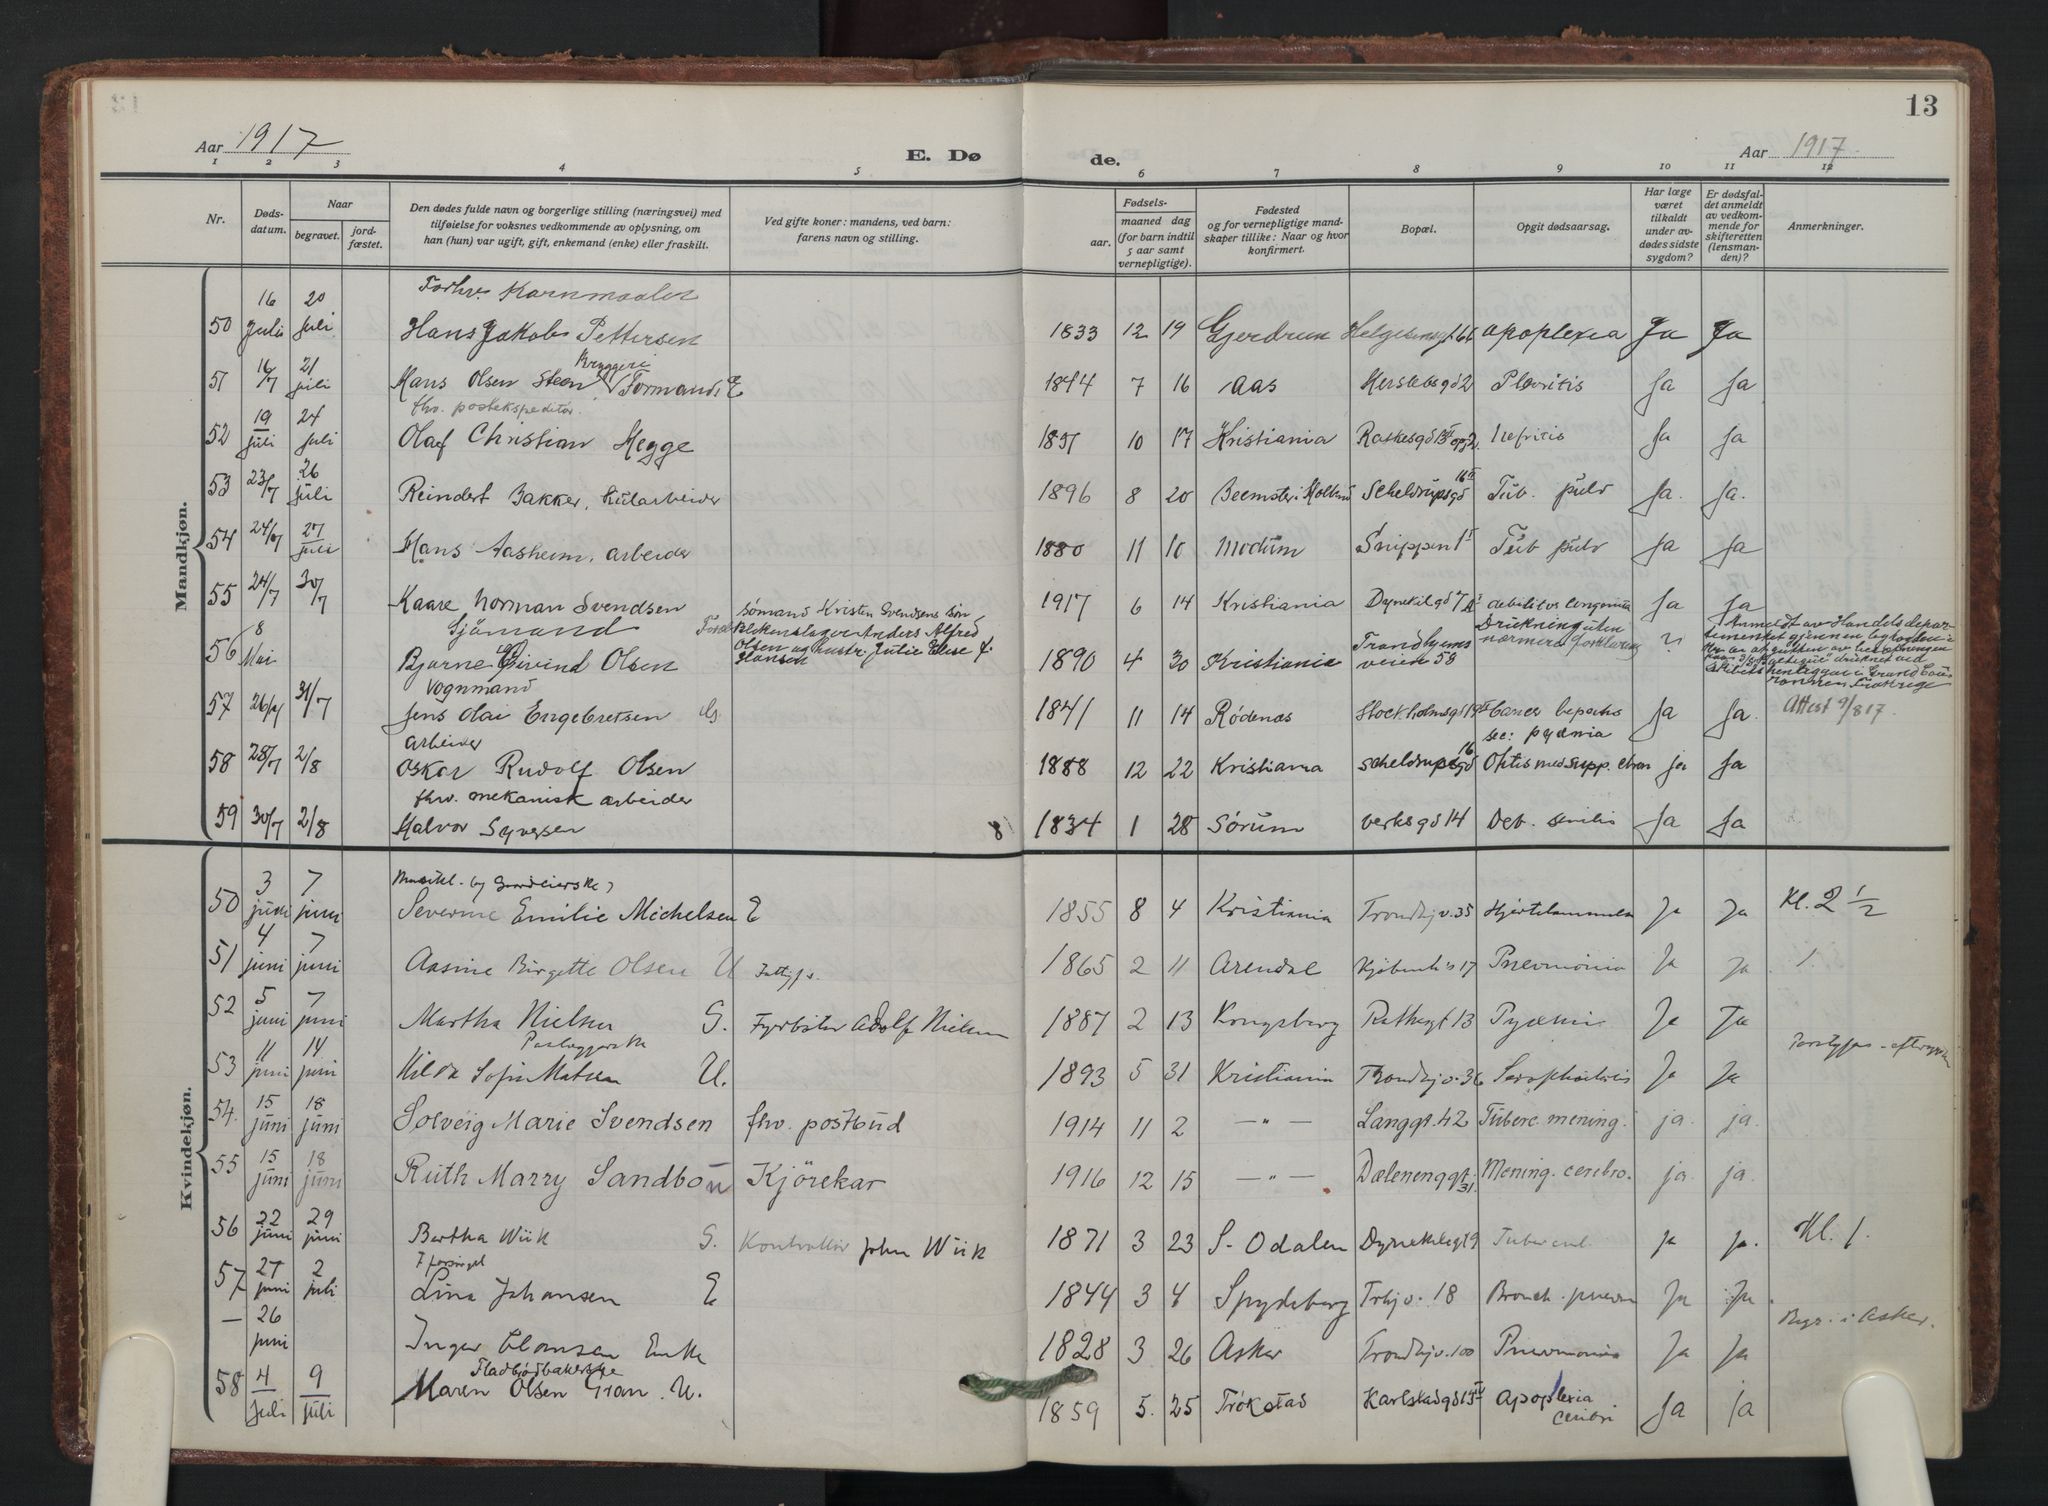 13
Aar 1917
E. Dø
de.
Aar 1917
1 2 3 4 5 6 7 8 9 10 11 12
Nr.
Døds-
datum.
Naar
begravet.
jord-
fæstet.
Den dødes fulde navn og borgerlige stilling (næringsvei) med
tilføielse for voksnes vedkommende av oplysning, om
han (hun) var ugift, gift, enkemand (enke) eller fraskilt.
Ved gifte koner: mandens, ved barn:
farens navn og stilling.
Fødsels-
aar.
maaned dag
(for barn indtil
5 aar samt
vernepligtige).
Fødested
og for vernepligtige mand-
skaper tillike: Naar og hvor
konfirmert.
Bopæl.
Opgit dødsaarsag.
Har læge
været
tilkaldt
under av-
dødes sidste
sygdom?
Er dødsfal-
det anmeldt
av vedkom-
mende for
skifteretten
(lensman-
den)?
Anmerkninger.
Mandkjøn.
Forhv. Kornmaaler
50 16 Juli 20 juli Hans Jakob Pettersen 1833 12 19 Gjerdrum Helgesensgt 66 apoplexia Ja Ja
Bryggeri
51 16/7 21 juli Hans Olsen Steen, Formand E 1844 7 16 Aas Herslebsgd 2 Plevritis Ja Ja
fhv. postekspeditør
52 19 juli 24 juli Olaf Christian Hegge 1851 10 17 Kristiania Nefritis Ja Ja
53 23/7 26 juli Reindert Bakker, 1896 8 20 Beemster i Holland Scheldrupsgd 16 II Tub. pulv Ja. Ja.
54 24/7 27 juli Hans Aasheim, arbeider 1880 11 10 Modum Snippen 1 I Tub pulv Ja Ja
55 24/7 30/7 Kaare Norman Svendsen Sømand Kristen Svendsens søn 1917 6 14 Kristiania Dynekilgd 7 debilitas congenita Ja Ja
Sjømand
56 8 Mai Bjarne Eivind Olsen Blikkenslager Anders Alfred
Olsen og hustr. Julie Elise f.
Hansen 1890 4 30 Kristiania Trondhjems
veien 58 Drukning uten
nærmere forklaring Anmeldt av Handelsdepar-
tementet
Vognmand
57 26/7 31/7 Jens Olai Engebretsen G. 1841 11 14 Rødenes Stockholmsgd 19 Cancer hepatis Ja Ja. Attest 9/8 17.
arbeider
58 28/7 2/8 Oskar Rudolf Olsen 1888 12 22 Kristiania Scheldrupsgd 16 sec: pyæmia
Otitis med supp. chron ja Ja
fhv. mekanisk arbeider
59 30/7 2/8 Halvor Syversen 8 1834 1 28 Sørum Verksgd 14 Deb. senilis Ja Ja
Kvindekjøn.
50 3 juni 7 juni Severine Emilie Michelsen E 1855 8 4 Kristiania Trondhj v. 35 Hjertelammelse Ja Ja Kl. 2 1/2
51 4 juni 7 juni Aasine Birgette Olsen U Fattigfs. 1865 2 11 Arendal 17 Pneumonia Ja Ja 1.
52 5 juni 7 juni Martha Nielsen G. Fyrbøter Adolf Nielsen 1887 2 13 Kongsberg Rathkegt 13 Pyæmi Ja Ja
53 11 juni 14 juni Hilda Sofie Matsen U. 1893 5 31 Kristiania Trondhj v. 36 Ja Ja
54. 15 juni 18 juni Solveig Marie Svendsen fhv. postbud 1914 11 2 —"— Langgt. 42 Tuberc. mening. ja. ja.
55 15 juni 18 juni Ruth Marry Sandbou Kjørekar 1916 12 15 —"— Dælenenggt 31. Mening. cerebro. ja. ja.
56 22 juni 29 juni Bertha Wiik G. Kontrollør John Wiik 1871 3 23 S. Odalen Dynekilegt 9 Tubercul. ja ja. Kl. 1.
57 27 juni 2 juli Lina Johansen E 1844 3 4 Spydeberg Trhj v. 18 Bronch. pneum Ja Ja.
— 26 juni Inger Thomsen Enke 1828 3 26 Asker Trondhj v. 100 Pneumonia Ja Ja Begr. i Asker.
Fladbrødbakerske
58 4 juli 9 juli Maren Olsen Gran. U. 1859 5. 25 Trøkstad Karlstadgd 15 Apoplexia
cerebri Ja Ja